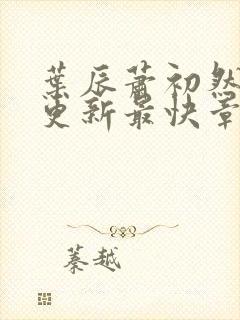 葉辰蕭初然
更新最快章
蓁越